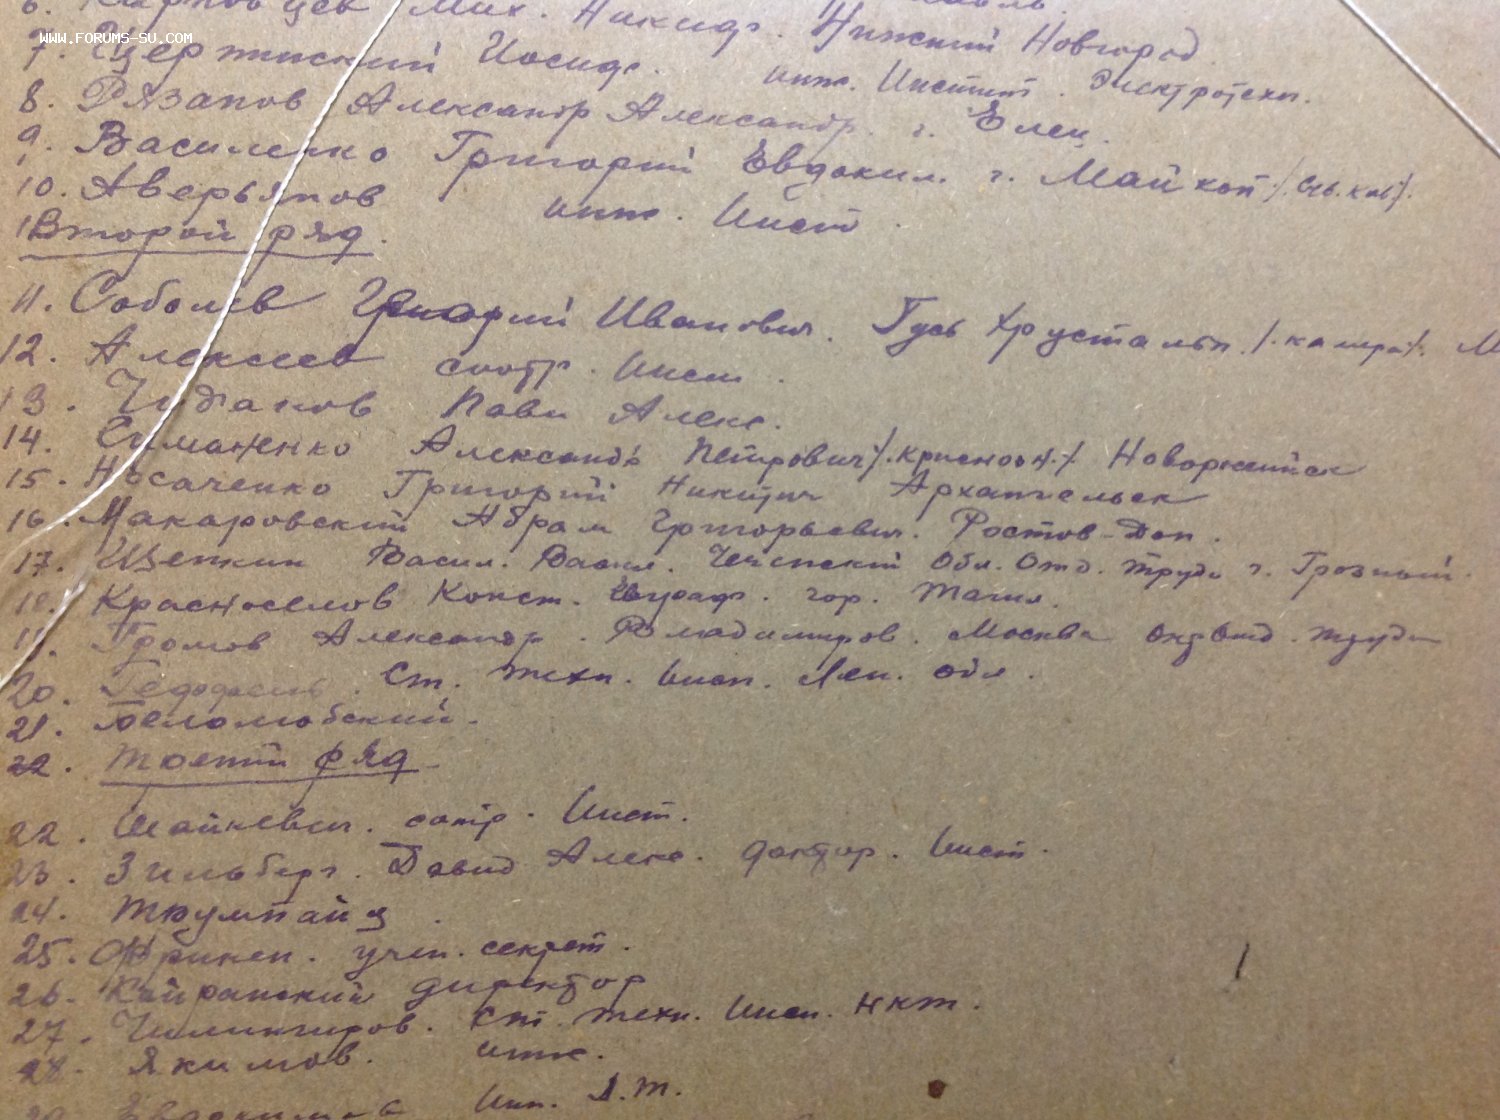 6. Мих. Никиф.
WWW.FORUMS-SU.COM
7. Дзержинский Иосиф. Нижний Новгород
8. Рязанов Александр Александр. г. Елец. инж. Инстит. Электротехн.
9. Василенко Григорий Евдоким. г. Майкоп /Сев. кав/.
10. Аверьянов инж. Инст.
Второй ряд.
11. Соболев Григорий Иванович. Гусь Хрустальн.
12. Алексеев сотр. Инст.
13. Чудаков Павл Алекс.
14. Симаненко Александр Петрович Новороссийск
15. Носаченко Григорий Никитич Архангельск
16. Макаровский Абрам Григорьевич. Ростов-Дон.
17. Щеткин Васил. Васил. Чеченский Обл. Отд. Труда г. Грозный.
18. Красноселов Конст. гор. Тагил.
19. Громов Александр. Владимиров. Москва Труда
20. Ст. техн. инсп. Лен. обл.
21. Беломобский.
22. Третий ряд
22. Шайкевич. сотр. Инст.
23. Зильберг. Давид Алекс. доктор. Инст.
24. Трумпайц.
25. Фрикен. учен. секрет.
26. Кайранский директор
27. Чилингиров. Ст. техн. Инсп. НКТ.
28. Якимов. инж.
29. Евдокимов Инж.